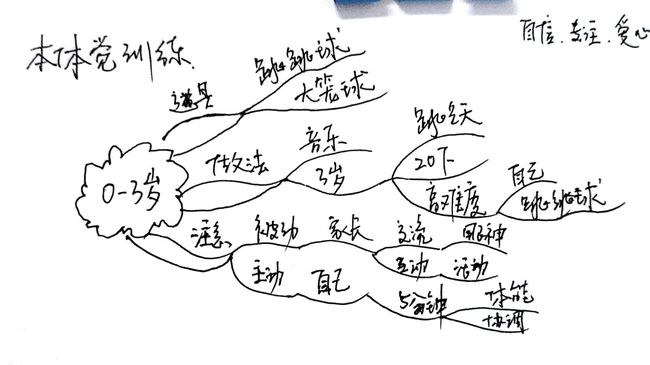 本体觉训练
自信、专注、爱心
0-3岁
道具
跳跳球
大笼球
做法
音乐
3岁
跳天
20下
高难度
自己
跳跳球
注意
被动
家长
交流
眼神
互动
活动
主动
自己
5分钟
体能
协调